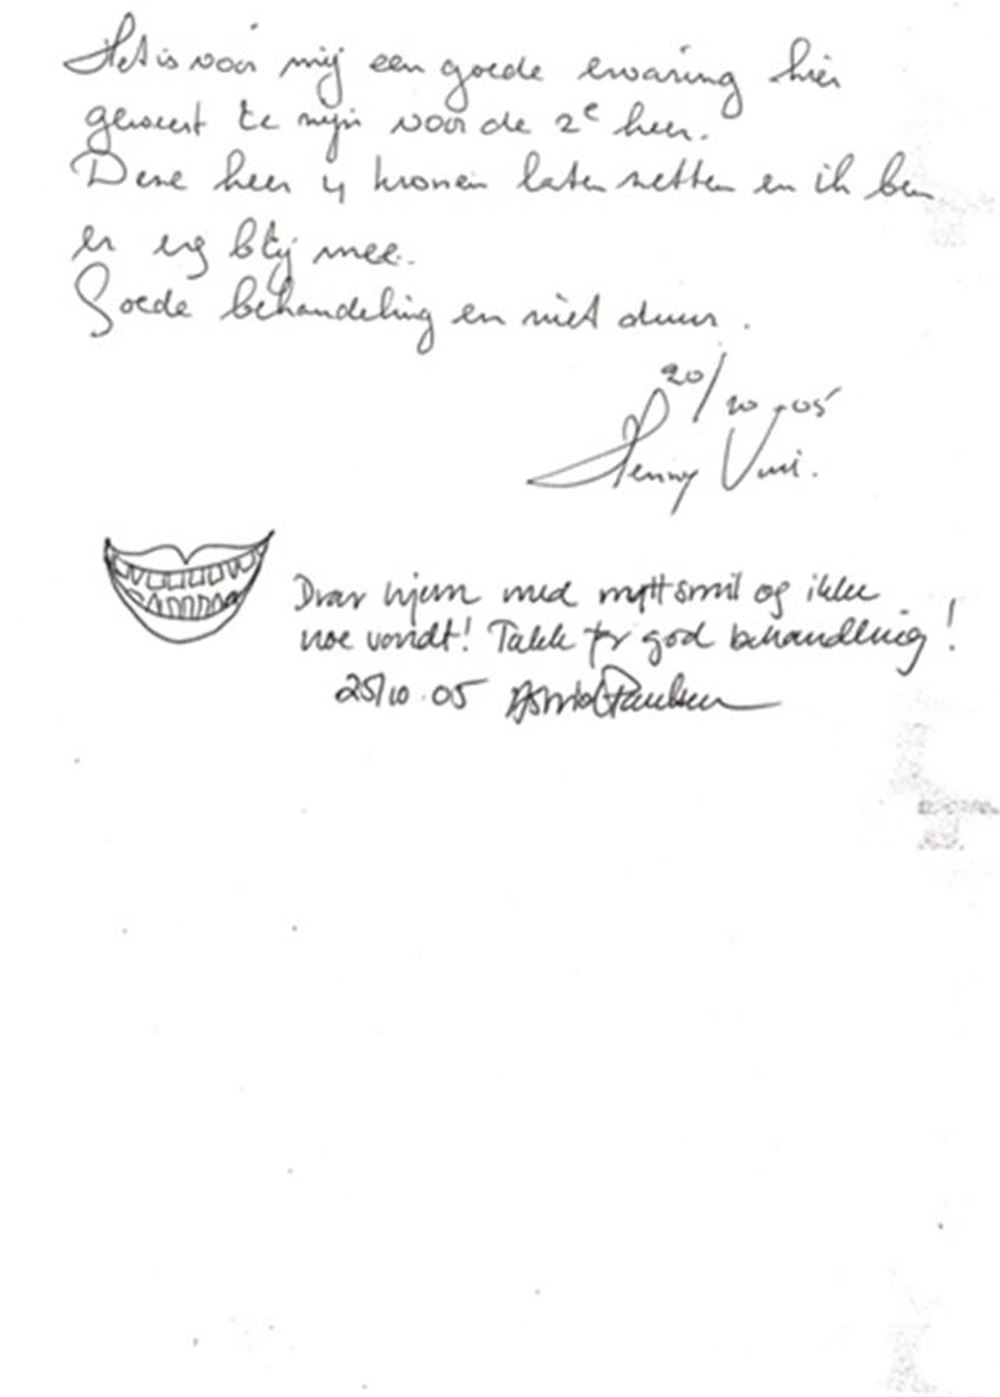 Het is voor mij een goede ervaring hier
geweest te zijn voor de 2e keer.
Deze keer 4 kronen laten zetten en ik ben
er erg blij mee.
Goede behandeling en niet duur.
20/10-05
Henny
Drar hjem med nytt smil og ikke
noe vondt! Takk for god behandling!
25/10.05 Astrid Paulsen